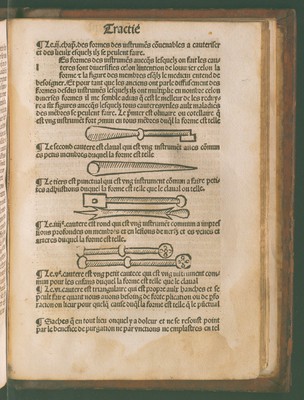 Tractie
¶ Le.ii.chap. des formes des instrumēs cōuenables a cauteriser
et des lieux esquelz ilz se peulent faire.
Es formes des instrumens auecqs lesquelz on fait les cau-
teres sont diuersifiees selon lintention de louurier selon la
forme et la figure des membres esqlz le medicin entend de
besoigner. Et pour tant que les anciens ont parle diffusement des
formes desdis instrumens lesquelz ilz ont multiplie en nombre selon
diuerses formes il me semble aduis
a six figures auecqs lesquelz tous cauteres aux maladies
des mēbres se peulent faire. Le p̄mier est oliuaire ou cotellaire q̄
est vng instrument fort cōmun en tous mēbres duql̄ la forme est telle
¶ Le second cautere est claual qui est vng instrumēt aucū cōmun
es petis membres duquel la forme est telle
¶ Le tiers est punctual qui est vng instrument cōmun a faire peti-
tes adhustions duquel la forme est telle que le claual ou telle.
¶ Le.iiii. cautere est rond qui est vng instrumēt commun a impres
sions profondes on membres et en lesions de et en venes et
arteres duquel la forme est telle.
¶ Le.v. cautere est vng petit cautere qui est vng instrument com-
mun pour les enfans duquel la forme est telle que le claual
¶ Le.vi. cautere est triangulaire qui est propre aux hanches et se
peult faire quant nous auons besoing de forte plication ou de per
foracion en leur pour quelq̄ cause duql̄ la forme est telle q̄ le pūctual
¶ Saches q̄ en tout lieu onquel y a doleur et ne se resoult point
par le benefice de purgation ne par vnctions ne emplastres en tel